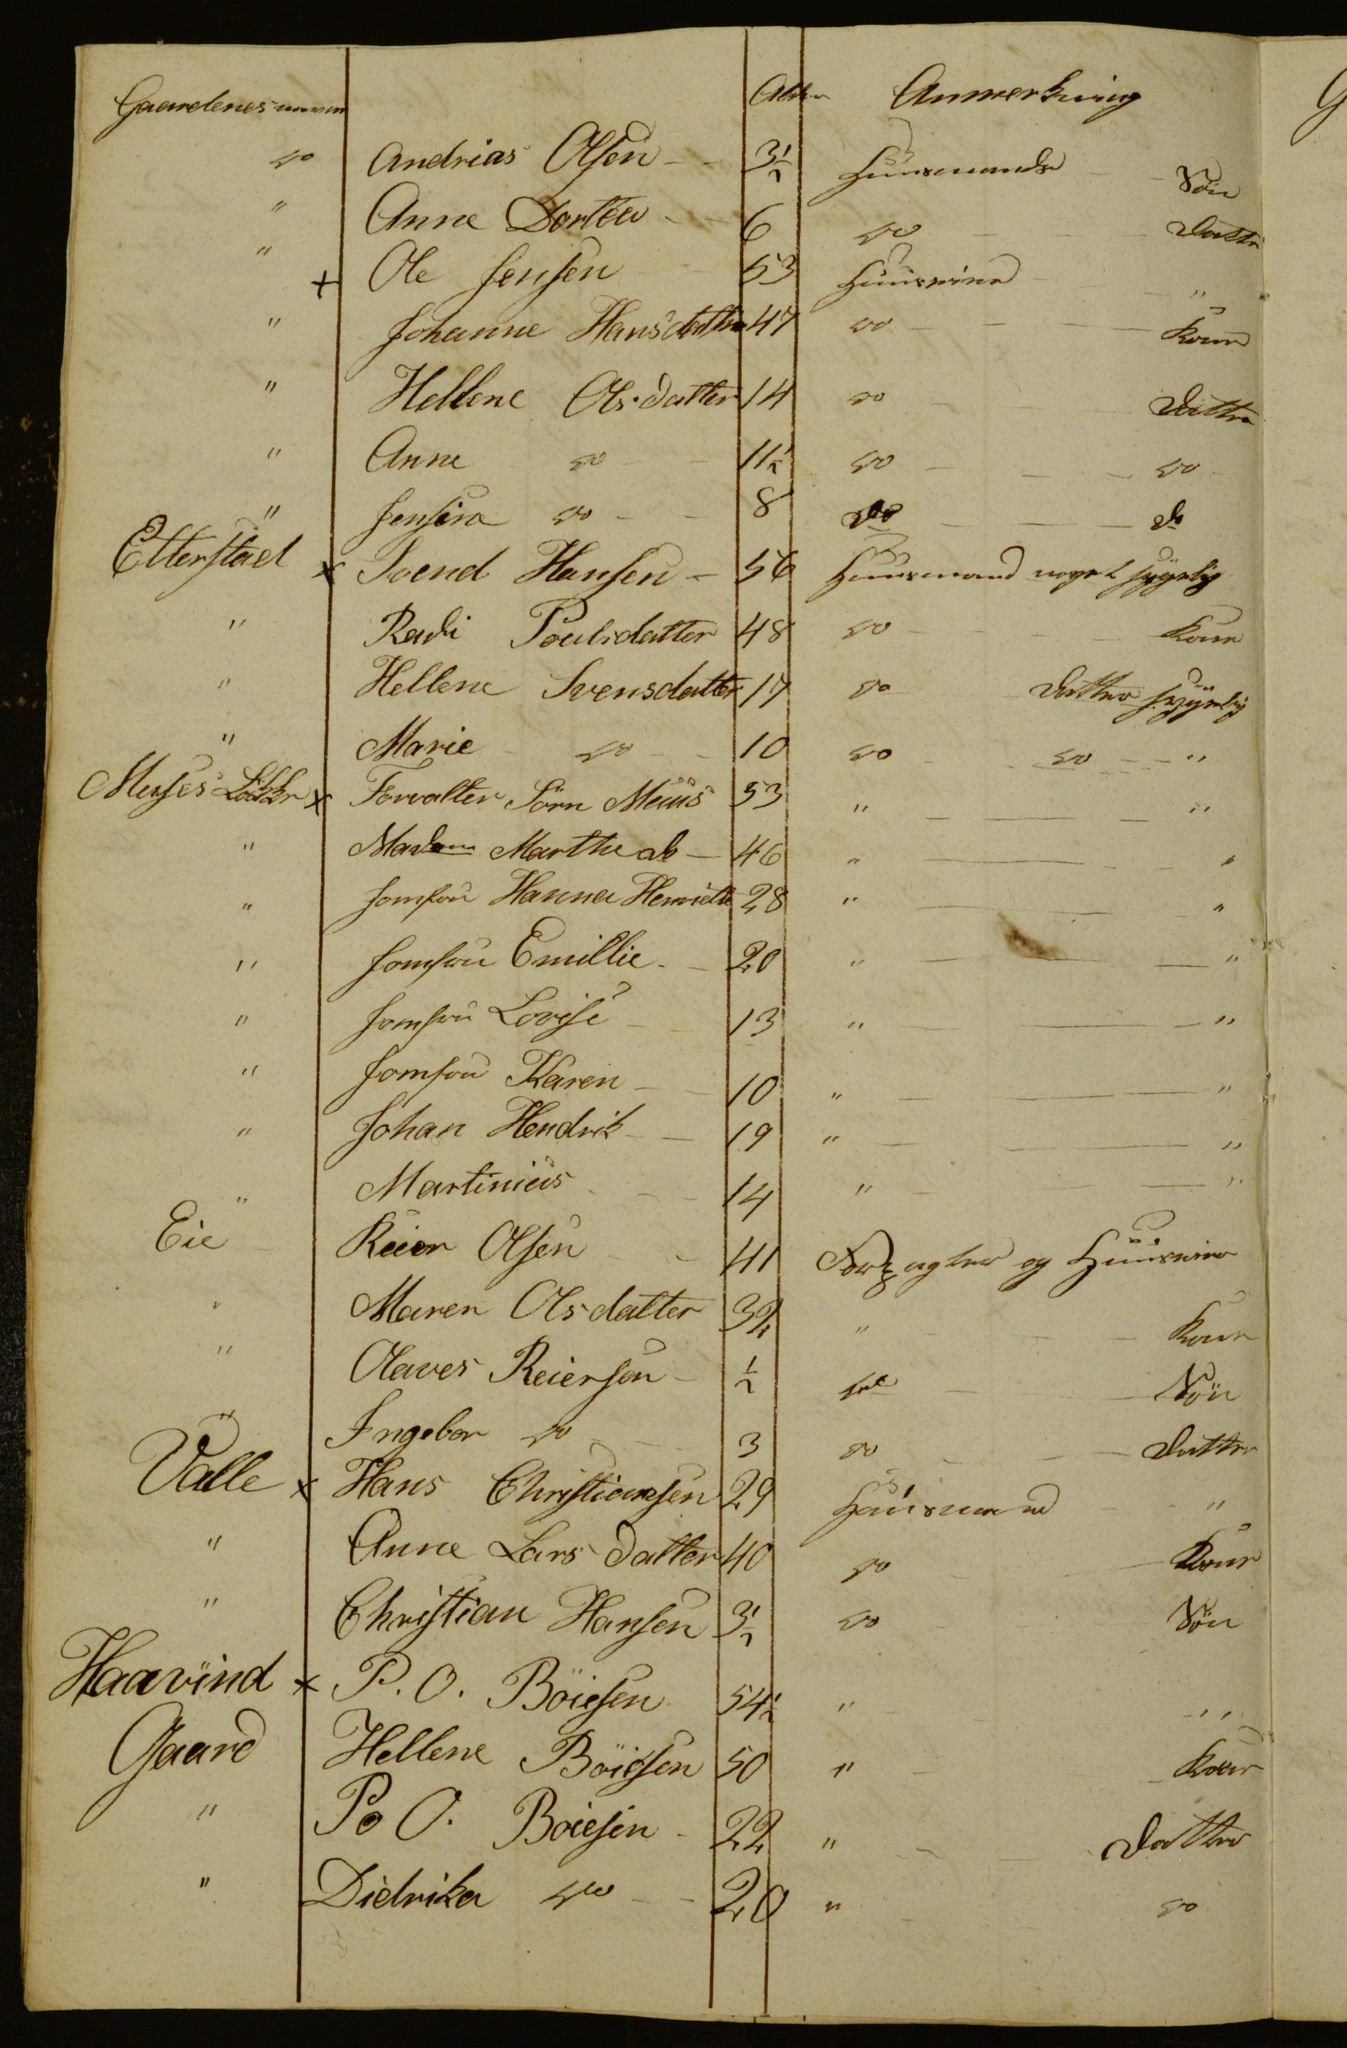 Gaardenes navn Alder Anmerkning
do Andrias Olsen - - 3½ Huusmands - Søn
" Anne Dortea - 6 do - - Datter
" + Ole Jensen - 53 Huusmand - "
" Johanne Hansdatter 47 do - - - Kone
" Hellene Olsdatter 14 do - Datter
" Anne do - - 11½ do - - do
" Jensine do - - 8 do - - do
Etterstad x Svend Hansen - 56 Huusmand noget sygelig
" Radi Poulsdatter 48 do - - Kone
" Hellene Svensdatter 17 do Datter sygelig
" Marie - do - - 10 do do - - "
x Forvalter Sörn 53 " - - "
" Madam Marthe do - 46 " - - "
" Jomfru Hanna Henriette 28 " - - "
" Jomfru Emillie - - 20 " - - "
" Jomfru Lovise - - 13 " - - "
" Jomfru Karen - - 10 " - - "
" Johan Hendrik - - 19 " - - "
" Martinius - - 14 " - - "
Eie Reier Olsen - - 41 Forpagter og
" Maren Olsdatter 32 " - - Kone
" Olaves Reiersen - ½ do - - Søn
" Ingebor do - 3 do - - Datter
Valle x Hans Christiansen 29 Huusmand - "
" Anne Lars Datter 40 do - Kone
" Christian Hansen 3½ do - Søn
Haavind x P. O. Böiesen 54½ " - "
Gaard Hellene Böiesen 50 " - - Kone
" P. O. Boiesen - 22 " - - Datter
" Didrika do - - 20 " - do